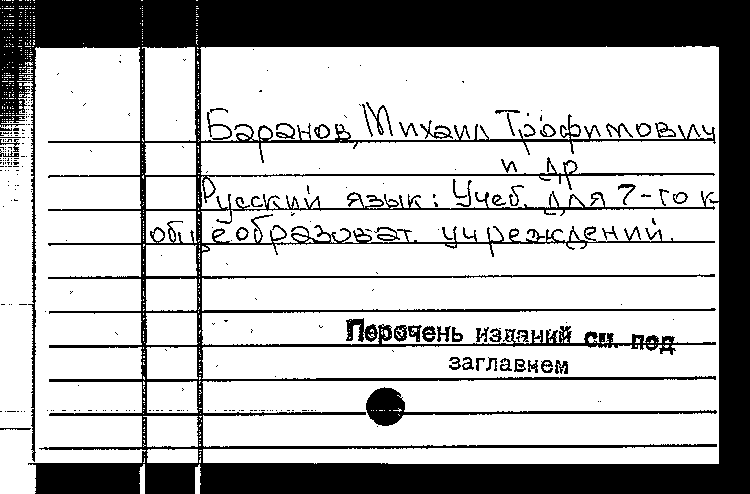 Баранов, Михаил Трофимович
и др
Русский язык: Учеб. для 7-го к
общеобразоват. учреждений.
Перечень изданий см. под
заглавием